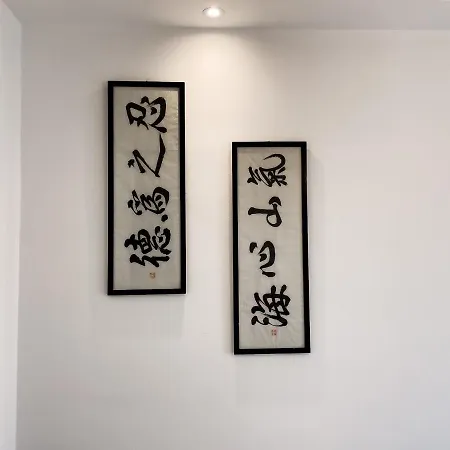 忍之為德
氣山心海